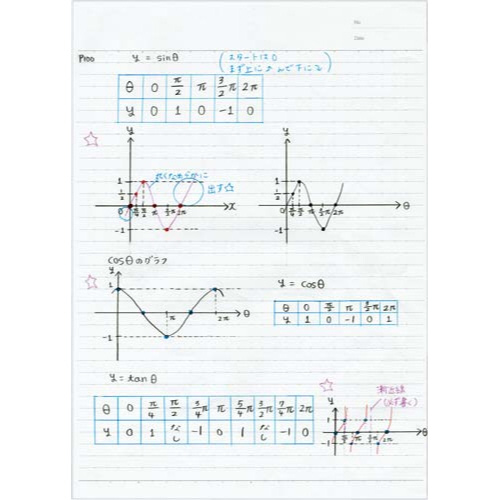 No.
Date
P100 y = sinθ (スタートは0
θ 0 π/2 π 3/2π 2π
y 0 1 0 -1 0
☆
y
1
1/2
0 π/6 π/2 π 3/2π 2π x
-1
出す☆
y
1
1/2
π/6 π/2 π 3/2π 2π θ
-1
cosθのグラフ
☆
y
1
π 2π θ
-1
y = cosθ
θ 0 π/2 π 3/2π 2π
y 1 0 -1 0 1
y = tanθ
θ 0 π/4 π/2 3/4π π 5/4π 3/2π 7/4π 2π
y 0 1 なし -1 0 1 なし -1 0
☆
漸近線
(必ず書く)
y
1
π/2 π 3/2π 2π θ
-1